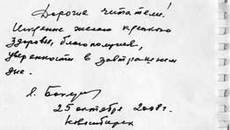 Дорогие читатели!
Искренне желаю крепкого
здоровья, благополучия,
уверенности в завтрашнем
дне.
25 октября 2008 г.
Новосибирск